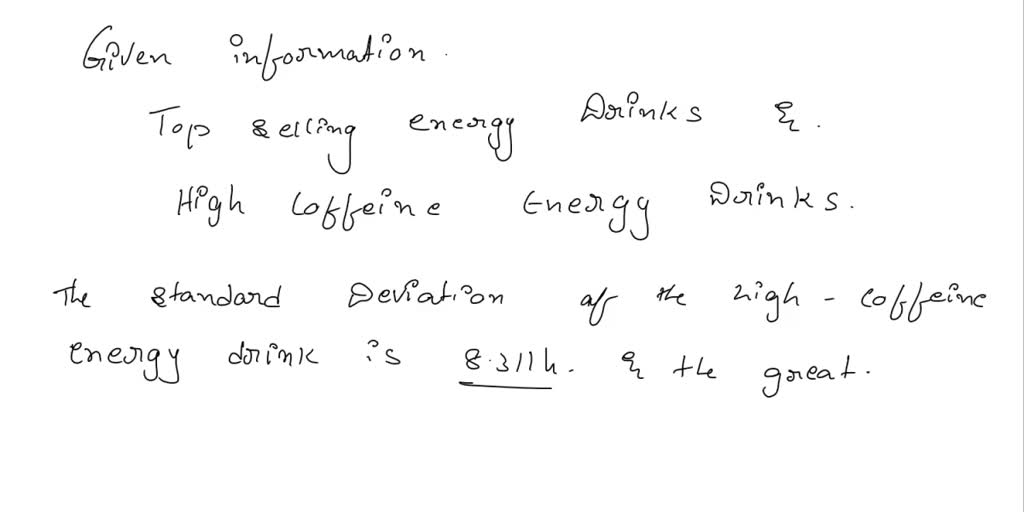 Given information.
Top selling energy Drinks &.
High Coffeine Energy Drinks.
The standard Deviation of the high - Coffeine
energy drink is 8.3114. & the great.